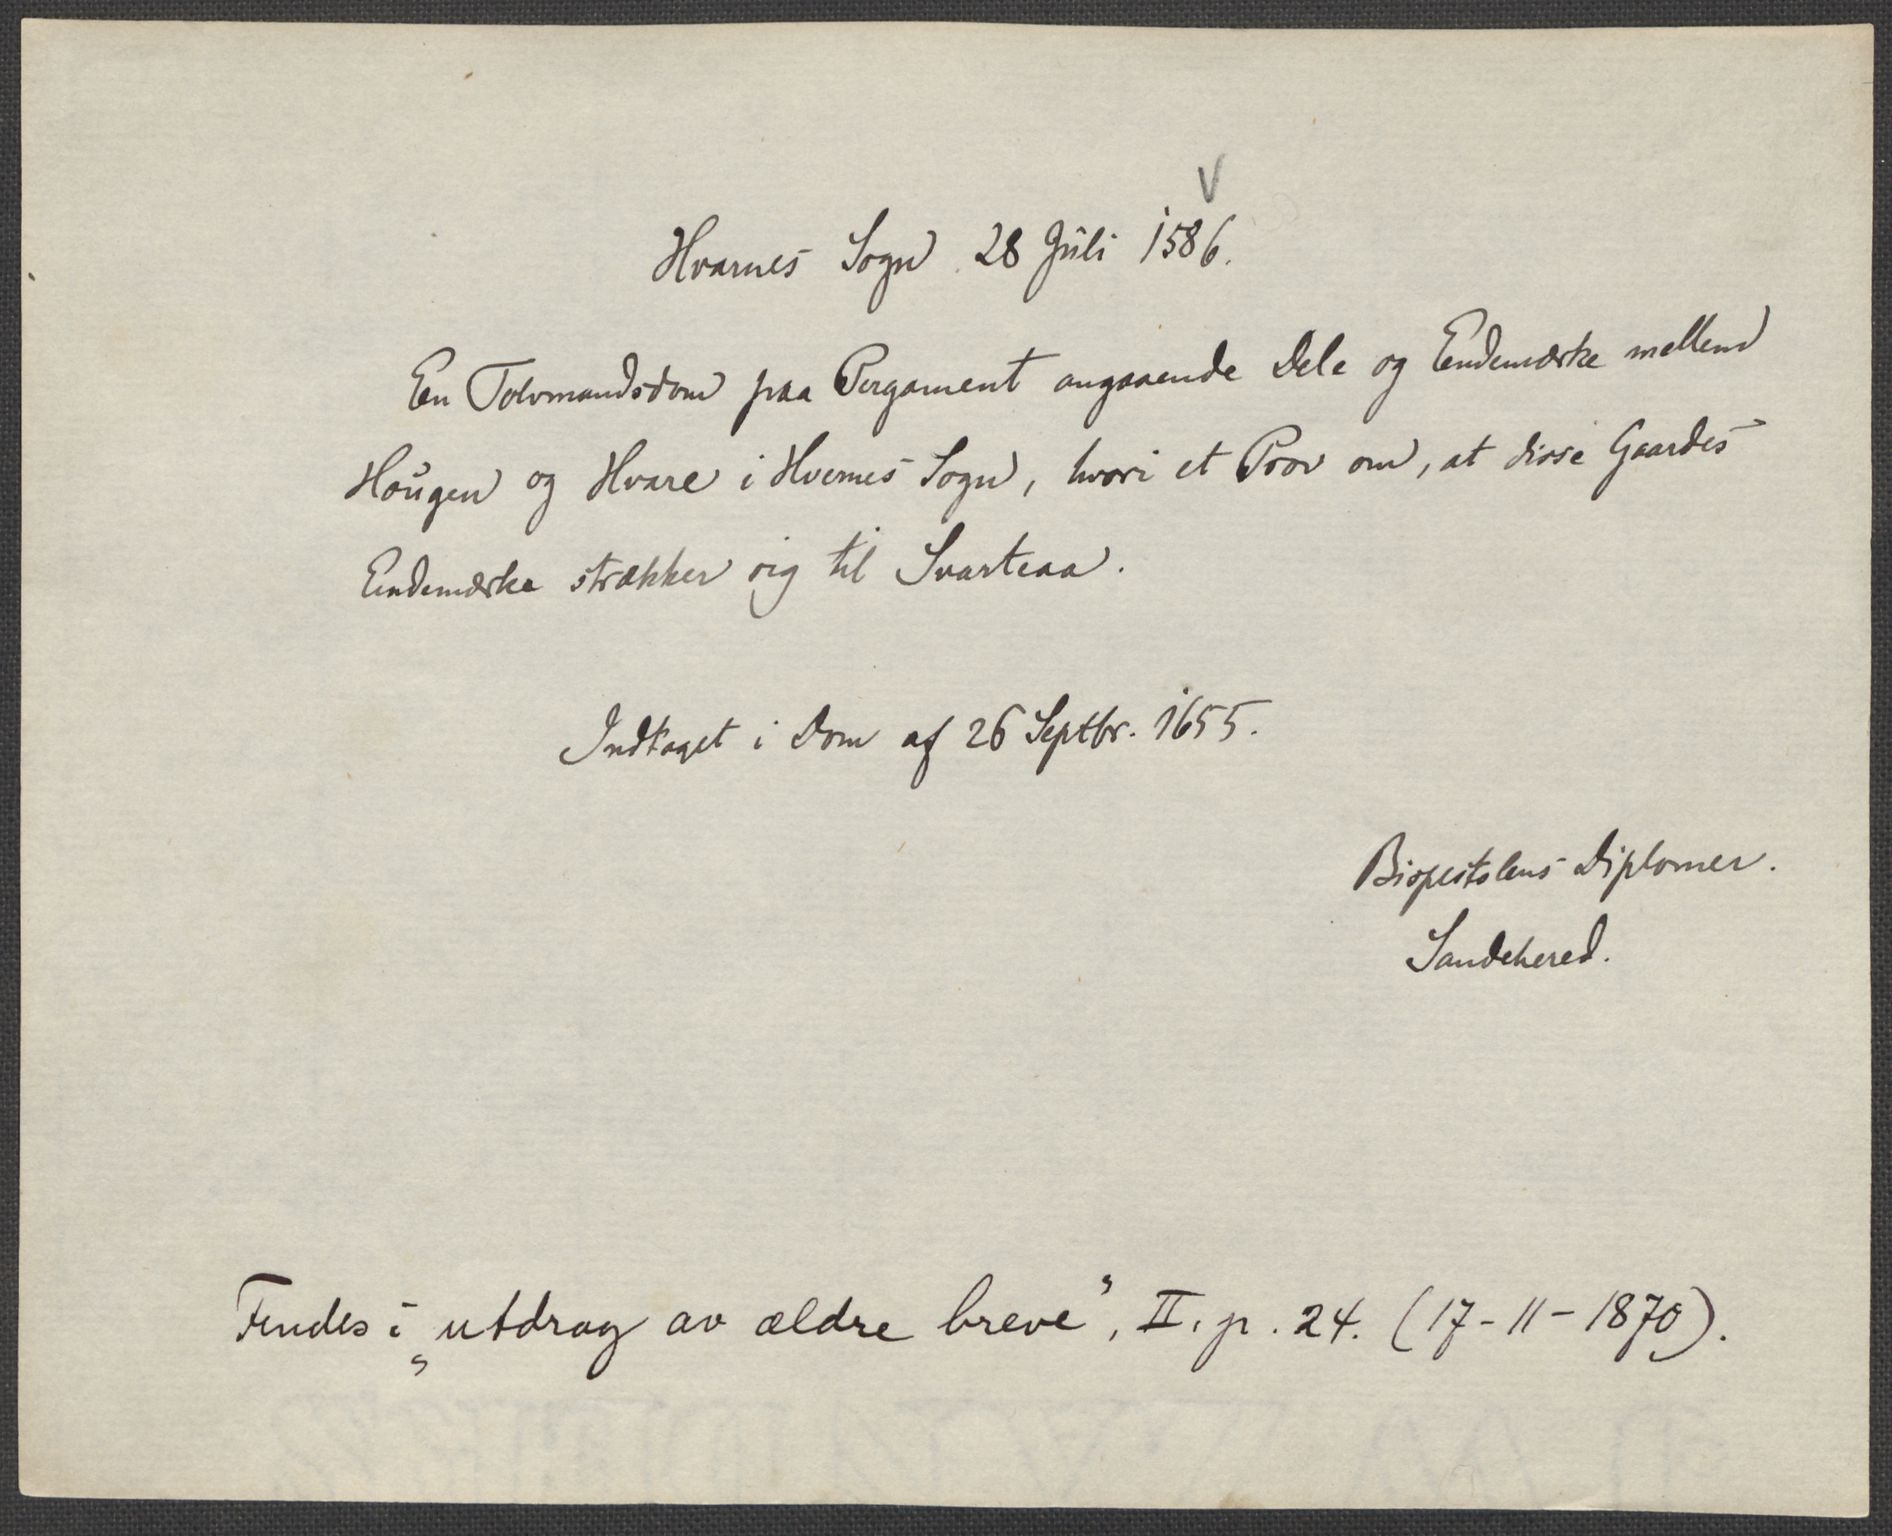 V
Hvarnes Sogn 28 Juli 1586.
En Tolvmandsdom paa Pergament angaaende Dele og Endemærke mellem
Hougen og Hvare i Hvernes Sogn, hvori et Prov om, at disse Gaardes
Endemærke strækker sig til Svarteaa.
Indtaget i Dom af 26 Septbr. 1655.
Bispestolens Diplomer.
Sandehered.
Findes i „utdrag av ældre breve", II. p. 24. (17-11-1870).